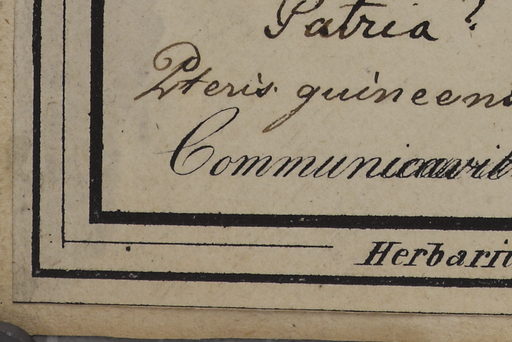 Patria ?
Pteris guineens
Communicavit
Herbari